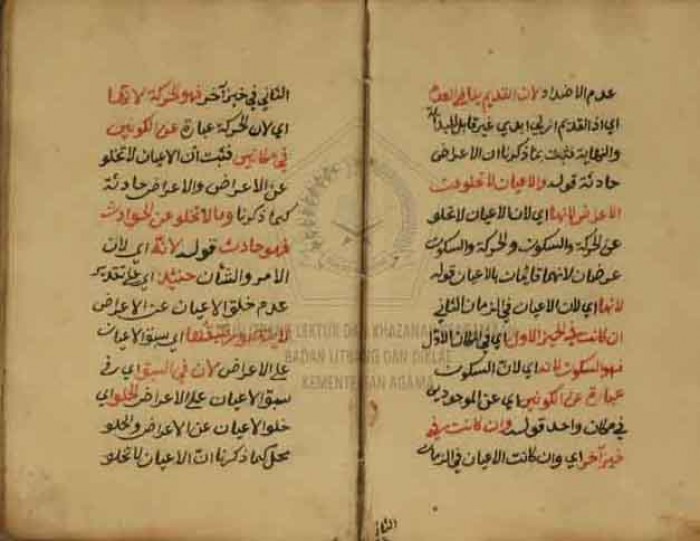 عدم الاضداد ولان القديم ينافي العدم
اي اذ القديم ازلي ابدي غير قابل للبداية
والنهاية فثبت بما ذكرنا ان الاعراض
حادثة قوله والاعيان لا تخلو من
الاعراض لانها اي لان الاعيان لا تخلو
عن الحركة والسكون والحركة والسكون
عرضان لانهما قائمان بالاعيان قوله
لانها اي لان الاعيان في الزمان الثاني
ان كانت في الحيز الاول اي في المكان الاول
فهو السكون لانه اي لان السكون
عبارة عن الكونين اي عن الموجودين
في مكان واحد قوله وان كانت في
حيز آخر اي وان كانت الاعيان في الزمان
الثاني
الثاني في حيز آخر فهو الحركة لانها
اي لان الحركة عبارة عن الكونين
في مكانين فثبت ان الاعيان لا تخلو
عن الاعراض والاعراض حادثة
كما ذكرنا وما لا تخلو عن الحوادث
فهو حادث قوله لانه اي لان
الامر والشأن حينئذ اي على تقدير
عدم خلق الاعيان عن الاعراض
اي سبق الاعيان
على الاعراض لان في السبق اي في
سبق الاعيان على الاعراض الخلو اي
خلو الاعيان عن الاعراض والخلو
محل كما ذكرنا ان الاعيان لا تخلو
PUSLITBANG LEKTUR DAN KHAZANAH KEAGAMAAN
BADAN LITBANG DAN DIKLAT
KEMENTERIAN AGAMA